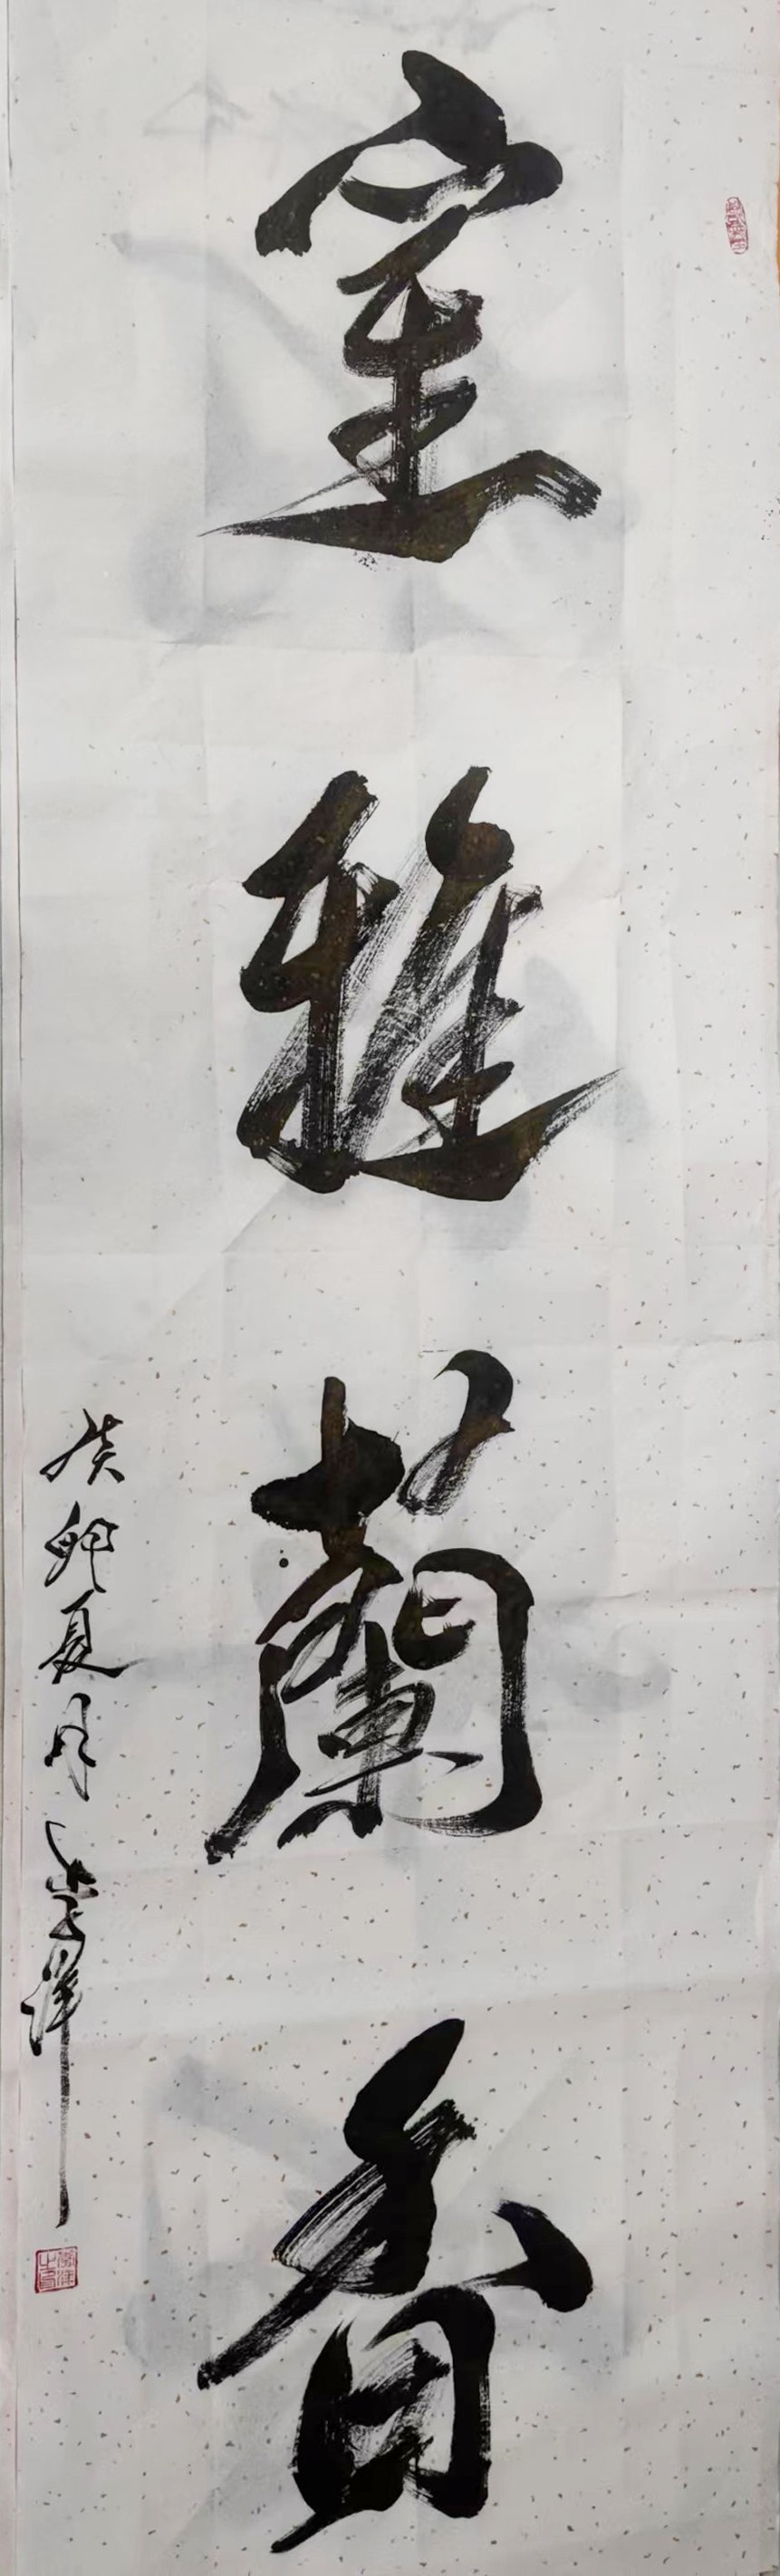 室雅蘭香
癸卯夏月